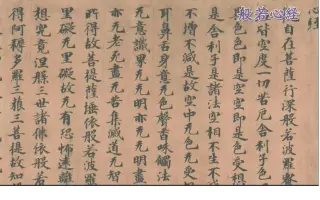 般若心経
心経
自在菩薩行深般若波羅蜜
皆空度一切苦厄舍利子色
異色色即是空空即是色受想
是舍利子是諸法空相不生不
不増不減是故空中无色无受
耳鼻舌身意无色聲香味觸法
无意識界无无明亦无无明盡
亦无老死盡无苦集滅道无智
所得故菩提薩埵依般若波羅
罣礙故无有恐怖遠離
想究竟涅槃三世諸佛依般若
得阿耨多羅三藐三菩提故知